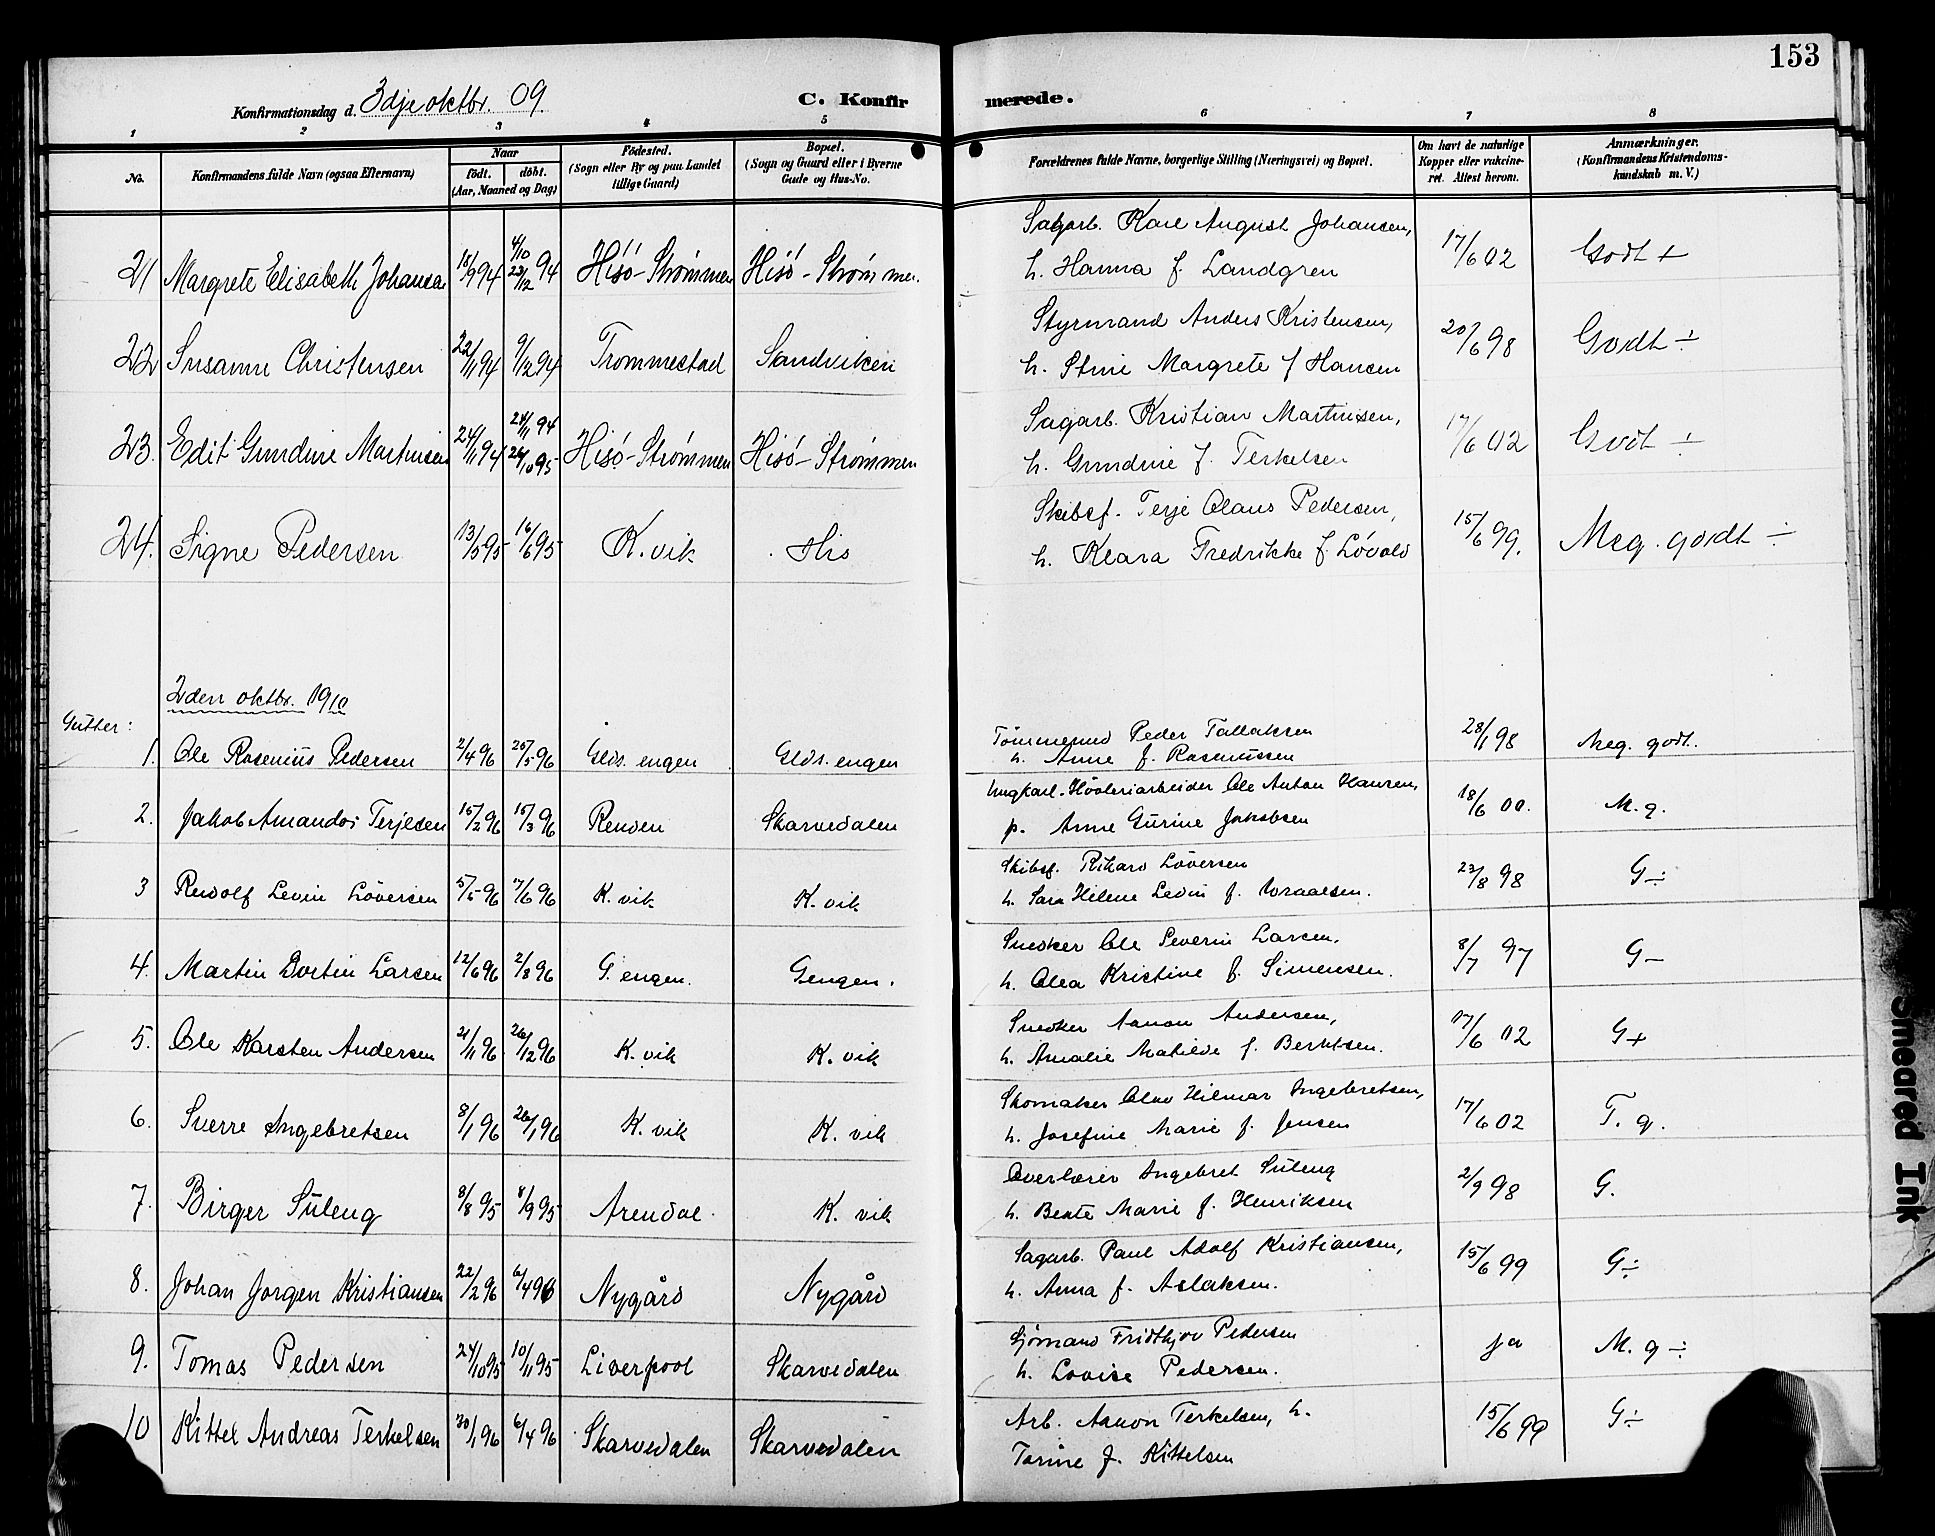 153
Konfirmationsdag d. 3dje oktbr. 09.
C. Konfirmerede.
1 2 3 4 5 6 7 8
No.
Konfirmandens fulde Navn (ogsaa Efternavn)
Naar
födt. döbt.
(Aar, Maaned og Dag)
Födested.
(Sogn eller By og paa Landet
tillige Gaard)
Bopæl.
(Sogn og Gaard eller i Byerne
Gade og Hus-No.
Forældrenes fulde Navne, borgerlige Stilling (Næringsvei) og Bopæl.
Om havt de naturlige
Kopper eller vakcine-
ret. Attest herom.
Anmærkninger.
(Konfirmandens Kristendoms-
kundskab m. V.)
21 Margrete Elisabeth Johansen 18/9 94 4/10 23/12 94 Hisö-Strømmen Hisö-Strømmen. Sagarb. Karl August Johansen, 17/6 02 Godt +
h. Hanna f. Landgren
22 Susanne Christensen 22/11 94 9/12 94 Trommestad Sandviken Styrmand Anders Kristensen, 20/6 98 Godt ÷
h. Stine Margrete f Hansen
23. Edit Gundine Martinsen 24/11 94 24/11 94 Hisø-Strømmen Hisø-Strømmen Sagarb. Kristian Martinsen, 17/6 02 Godt ÷
24/10 95 h. Gundine f. Terkelsen
24. Signe Pedersen 13/5 95 16/6 95 K.vik His Skibsf. Terje Olaus Pedersen, 15/6 99. Meg. godt ÷
h. Klara Fredrikke f. Lövold
2den oktbr. 1910
Gutter:
1. Ole Rosenius Pedersen 2/4 96 25/5 96 Glds. engen Glds. engen Tömmermd Peder Tallaksen 28/1 98 Meg. godt.
h. Anne f. Rasmussen
2. Jakob Amandus Terjesen 15/2 96 15/3 96 Revden Skarvedalen Ungkarl. Hövleriarbeider Ole Anton Hansen, 18/6 00. M. g.
p. Anne Gurine Jakobsen
3 Rudolf Levin Löversen 5/5 96 7/6 96 K. vik K. vik Skibsf. Rikard Löversen 23/8 98 G÷
h. Sara Helene Levin f. Wraalsen.
4. Martin Bertin Larsen 12/6 96 2/8 96 G. engen. Gengen. Snedker Ole Severin Larsen, 8/7 97 G–
h. Olea Kristine f. Simensen.
5. Ole Karsten Andersen 21/11 96 26/12 96 K. vik K. vik Snedker Aanon Andersen, 17/6 02 G+
h. Amalie Matilde f. Berntsen.
6. Sverre Ingebretsen 8/1 96 26/1 96 K. vik K. vik Skomaker Olav Hilmar Ingebretsen, 17/6 02 T. g.
h. Josefine Marie f. Jensen
7. Birger Suleng 8/8 95 8/9 95 Arendal K. vik Overlærer Ingebret Suleng 2/9 98 G.
h. Beate Marie f. Henriksen
8. Johan Jorgen Kristiansen 22/2 96 6/4 96 Nygård Nygård Sagarb. Paul Adolf Kristiansen, 15/6 99 G÷
h. Anna f. Aslaksen.
9. Tomas Pedersen 24/10 95 10/11 95 Liverpool Skarvedalen Sjömand Fridthjov Pedersen ja M. g ÷
h. Lovise Pedersen.
10 Kittel Andreas Terkelsen 30/1 96 6/4 96 Skarvedalen Skarvedalen Arb. Aanon Terkelsen, h. 15/6 99 G÷
Torine f. Kittelsen
Smeared Ink